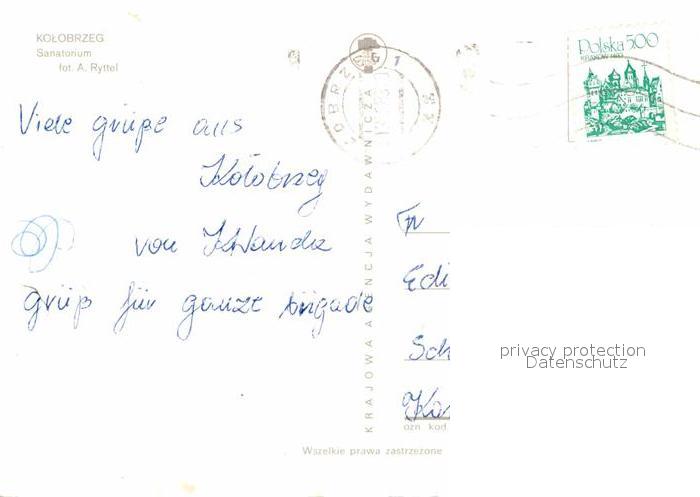 KOŁOBRZEG
Sanatorium
fot. A. Ryttel
Viele grüße aus
Kołobrzeg
von Wanda
Grüß für ganze brigade
KRAJOWA AGENCJA WYDAWNICZA
Polska 5.00
Fr
Edi
Sch
Ka
ozn kod
Wszelkie prawa zastrzeżone
privacy protection
Datenschutz